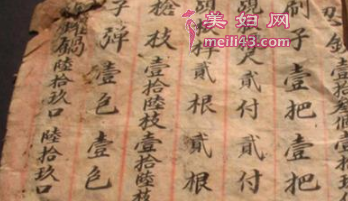 美妇网
meili43.com
壹拾叁個壹拾
刷子壹把壹把
貳付貳付
貳根貳根
槍枝壹拾陸枝壹拾陸枝
子彈壹色壹色
陸拾玖口陸拾玖口